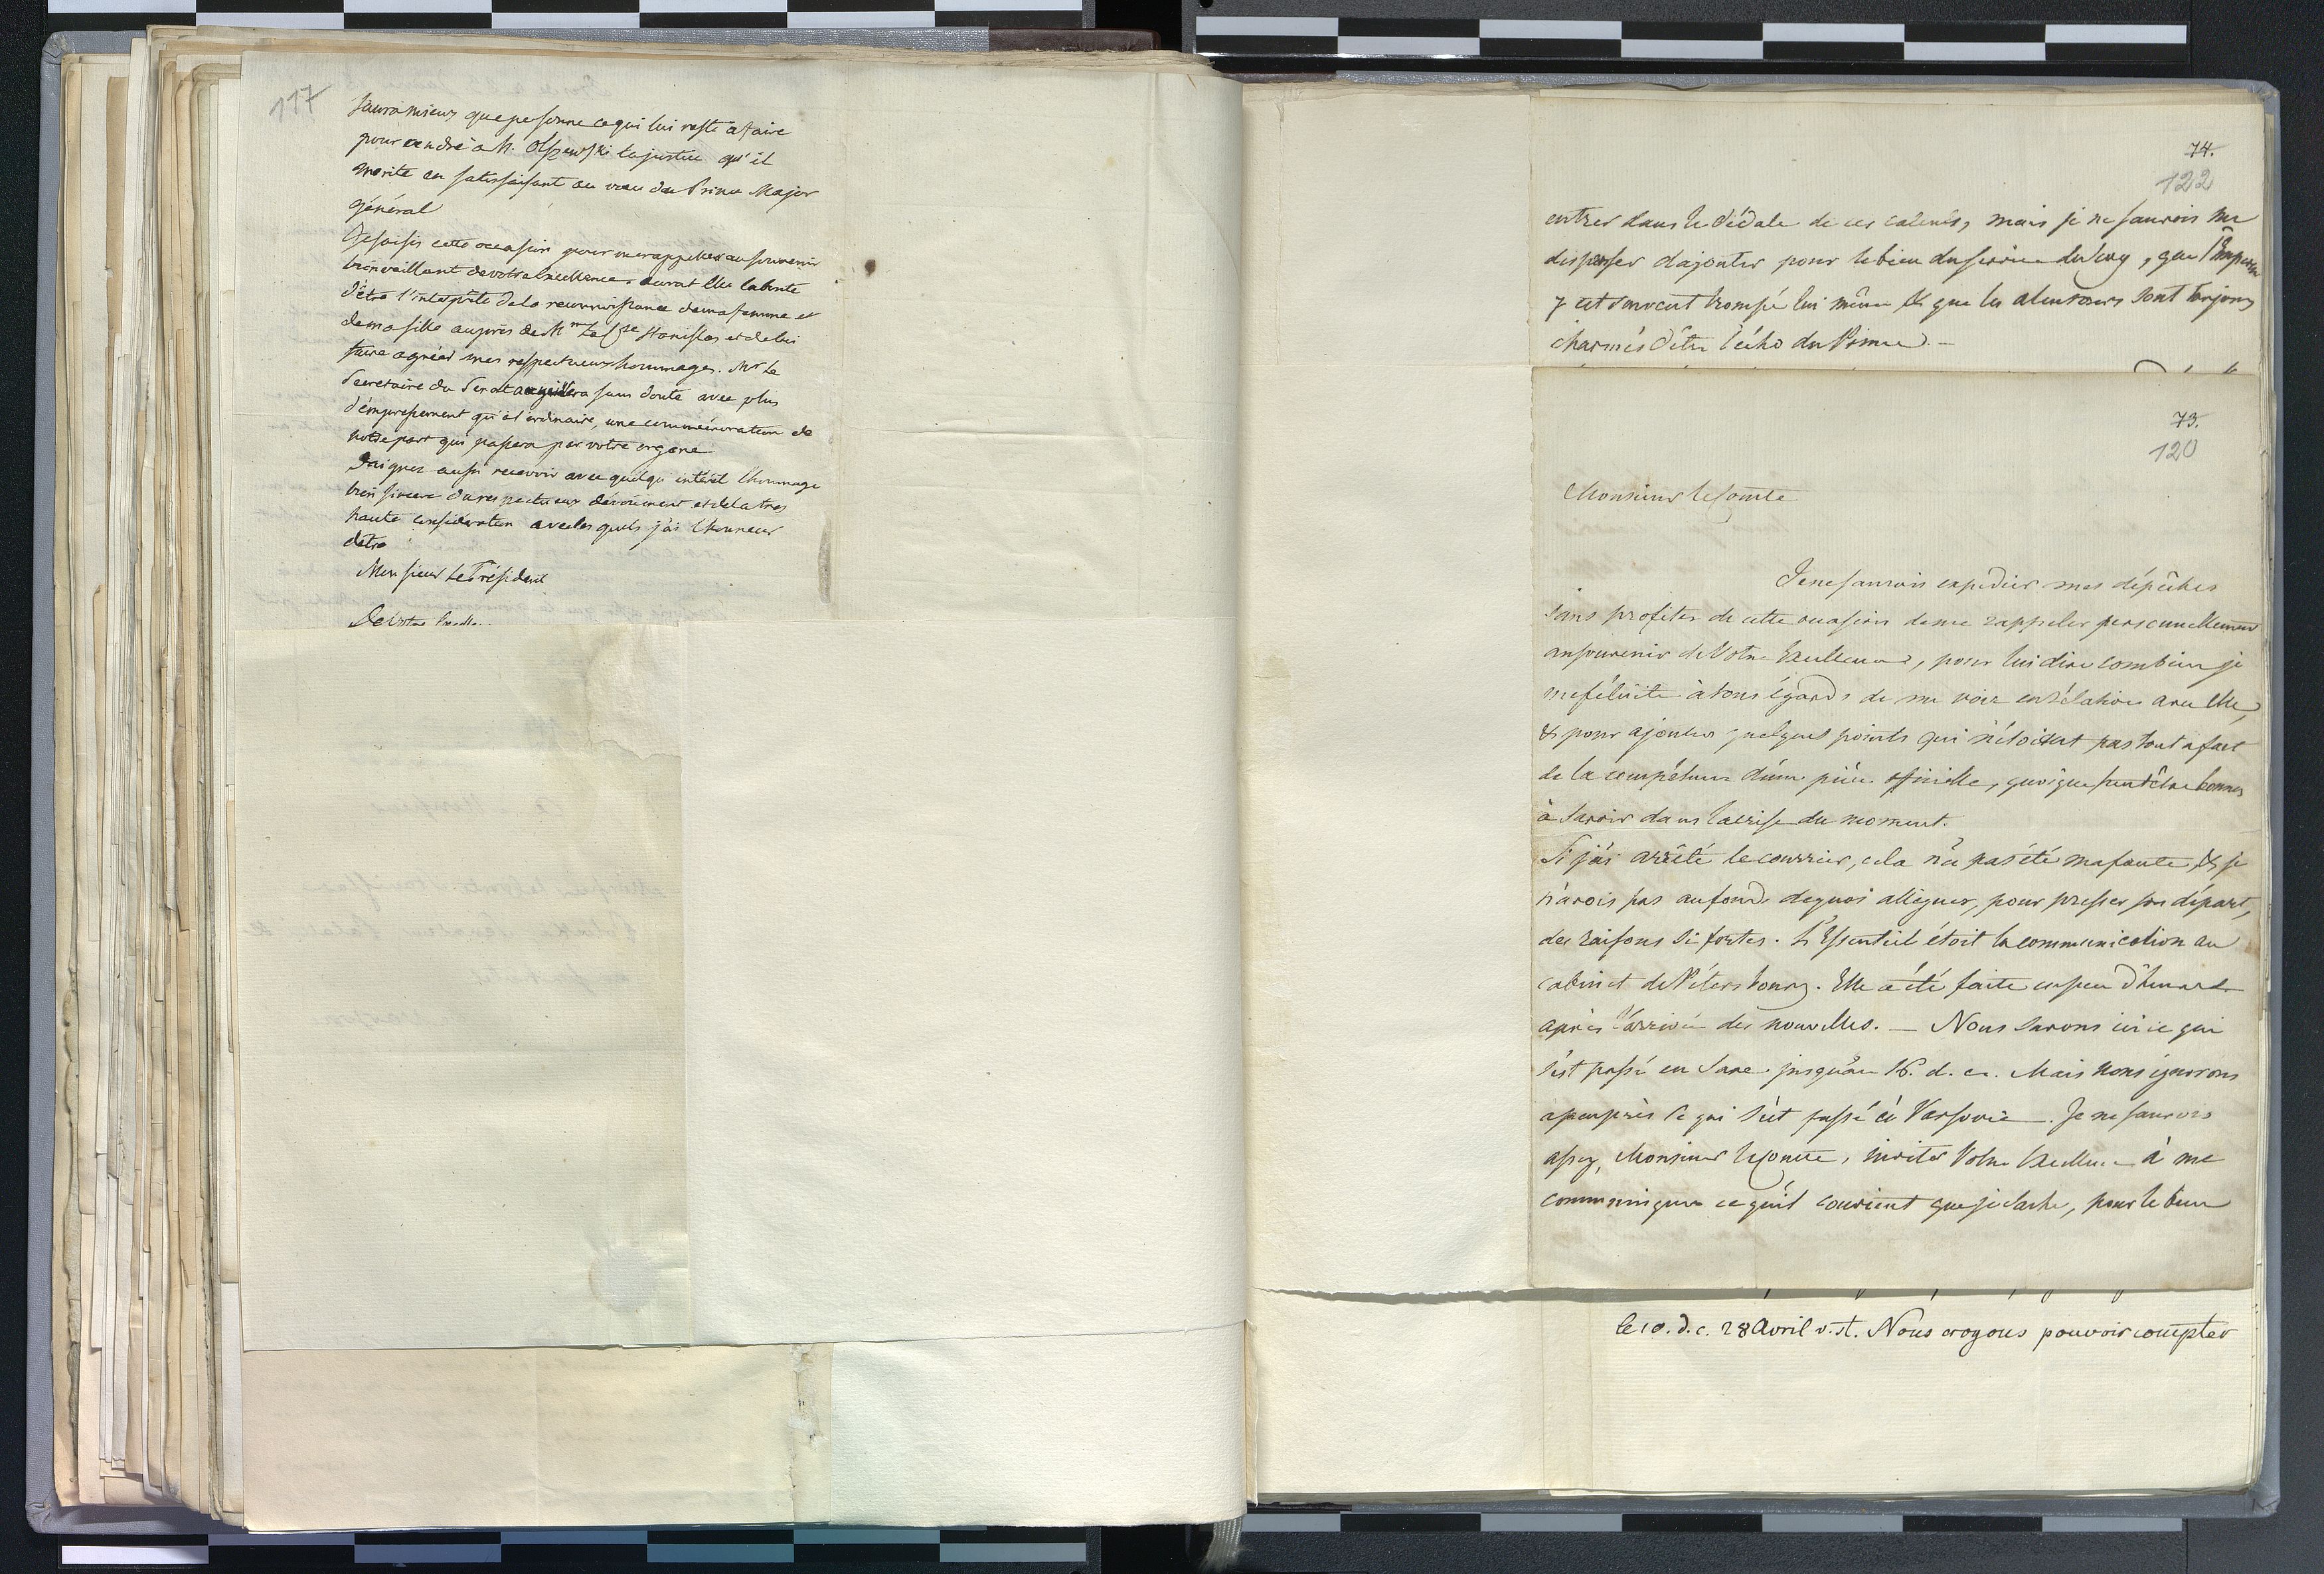 117
saura mieux que personne ce qui lui reste a faire
pour rendre a M. Olszewski la justice qu'il
merite en satisfaisant au voeu du Prince Major
général
Je saisis cette occasion pour me rappeller au souvenir
bienveillant de votre Excellence. aurat Elle la bonté
d'être l'interprète de la reconnoissance de ma femme et
de ma fille auprès de Mme La Csse Stanislas et de lui
faire agréer mes respectueux hommages. Mr Le
Secretaire du Senat accueillera sans doute avec plus
d'empressement qu'à l'ordinaire, une commémoration de
notre part qui passera par votre organe
Daignez aussi recevoir avec quelqu'intérêt l'hommage
bien sincere du respectueux dévoüement et de la tres
haute considération avec les quels j'ai l'honneur
d'etre
Monsieur Le Président
De Votre Excelle..
74.
122
entrer dans le dédale de ces calculs, mais je ne saurois me
dispenser d'ajouter pour le bien du service du Roy, que l'Empereur
y est souvent trompé lui même & que les alentours sont toujours
charmés d'être l'écho du Prince. —
73.
120
Monsieur le Comte
Je ne saurois expedier mes dépêches
sans profiter de cette occasion de me rappeler personnellement
au souvenir de Votre Excellence, pour lui dire combien je
me félicite à tous égards de me voir en rélation avec Elle,
& pour ajouter quelques points qui n'étoient pas tout a fait
de la compétence d'une pièce officielle, quoique peut être bonnes
à savoir dans la crise du moment.
Si j'ai arrêté le courrier, cela n'a pas été ma faute, & je
n'avois pas au fonds de quoi alléguer, pour presser son départ,
des raisons si fortes. L'Essentiel étoit la communication au
cabinet de Pétersbourg. Elle a été faite en peu d'heures
après l'arrivée des nouvelles. — Nous savons ici ce qui
s'est passé en Saxe jusqu'au 16. d. c. Mais nous ignorons
apeuprès ce qui s'est passé à Varsovie. Je ne saurois
assez, Monsieur le Comte, inviter Votre Excellence à me
communiquer ce qu'il convient que je sache, pour le bien
le 10. d. c. 28 Avril v. st. Nous croyons pouvoir compter